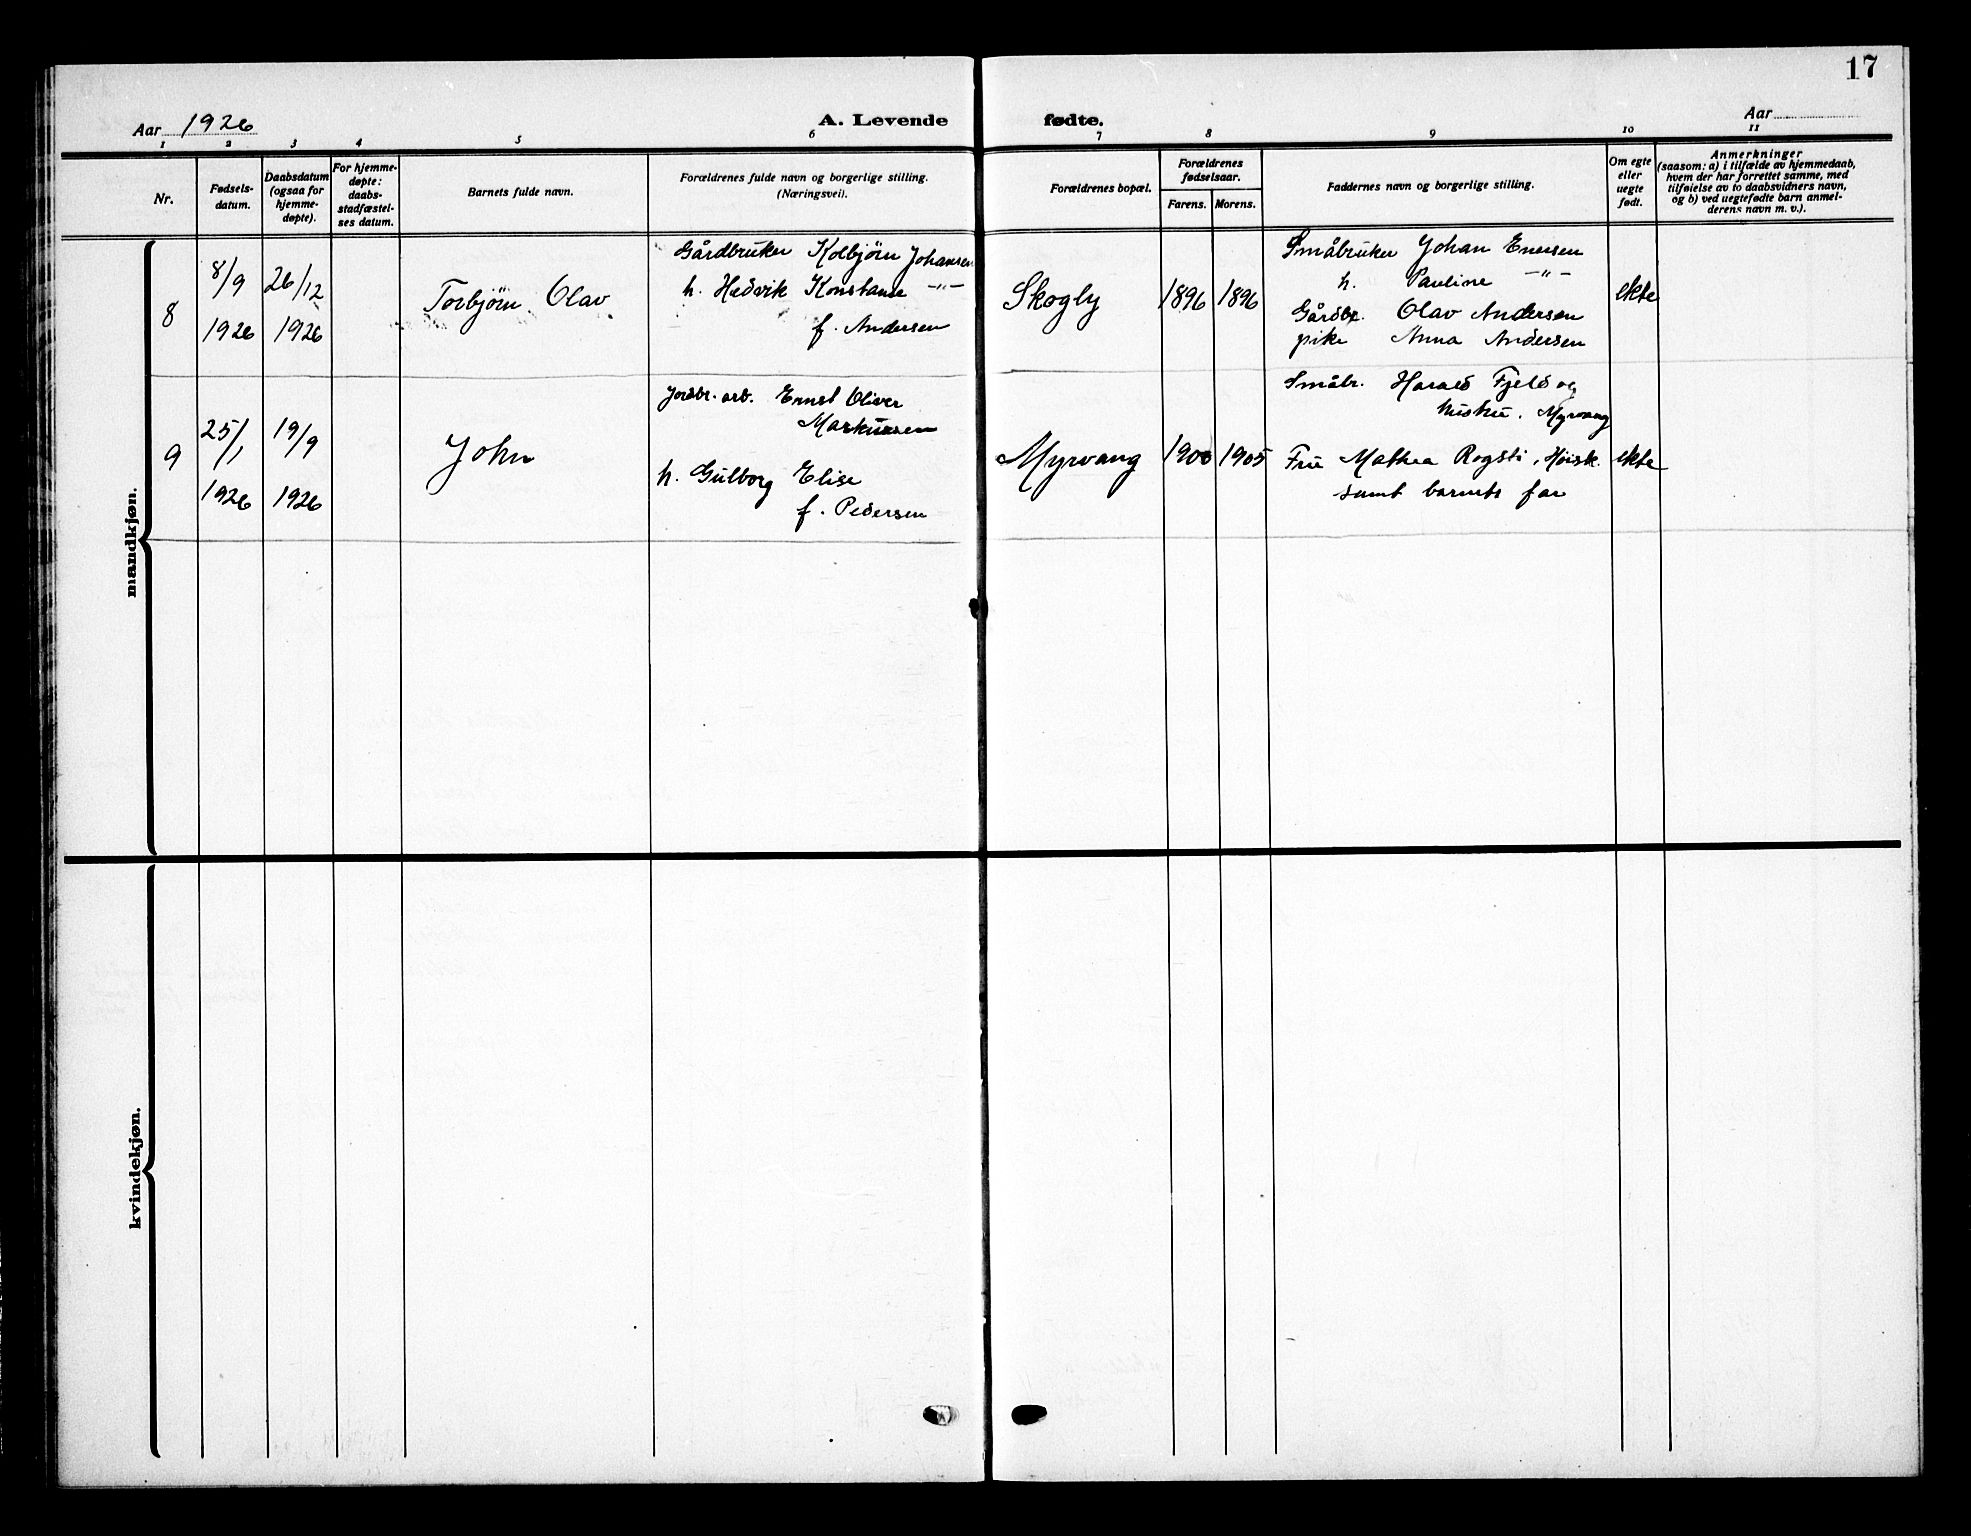 17
Aar 1926
A. Levende fødte.
Aar
1 2 3 4 5 6 7 8 9 10 11
Nr.
Fødsels-
datum.
Daabsdatum
(ogsaa for
hjemme-
døpte).
For hjemme-
døpte:
daabs-
stadfæstel-
ses datum.
Barnets fulde navn.
Forældrenes fulde navn og borgerlige stilling.
(Næringsvei).
Forældrenes bopæl.
Forældrenes
fødselsaar.
Farens. Morens.
Faddernes navn og borgerlige stilling.
Om egte
eller
uegte
født.
Anmerkninger
(saasom: a) i tilfælde av hjemmedaab,
hvem der har forrettet samme, med
tilføielse av to daabsvidners navn,
og b) ved uegtefødte barn anmel-
derens navn m. v.).
mandkjøn.
8
8/9
1926
26/12
1926
Torbjørn Olav
Gårdbruker Kolbjørn Johansen
h. Hedvik Konstanse -"-
f. Andersen
Skogly
1896
1896
Småbruker Johan Enersen
h. Pauline -"-
Gårdbr. Olav Andersen
pike Anna Andersen
ekte
9
25/1
1926
19/9
1926
John
Jordbr. arb. Ernst Oliver
Markussen
h. Gulborg Elise
f. Pedersen
Myrvang
1900
1905
Småbr. Harald Fjeld og
hustru, Myrvang
Frue Mathea Rogsti, Høisk.
samt barnets far
ekte
kvindekjøn.